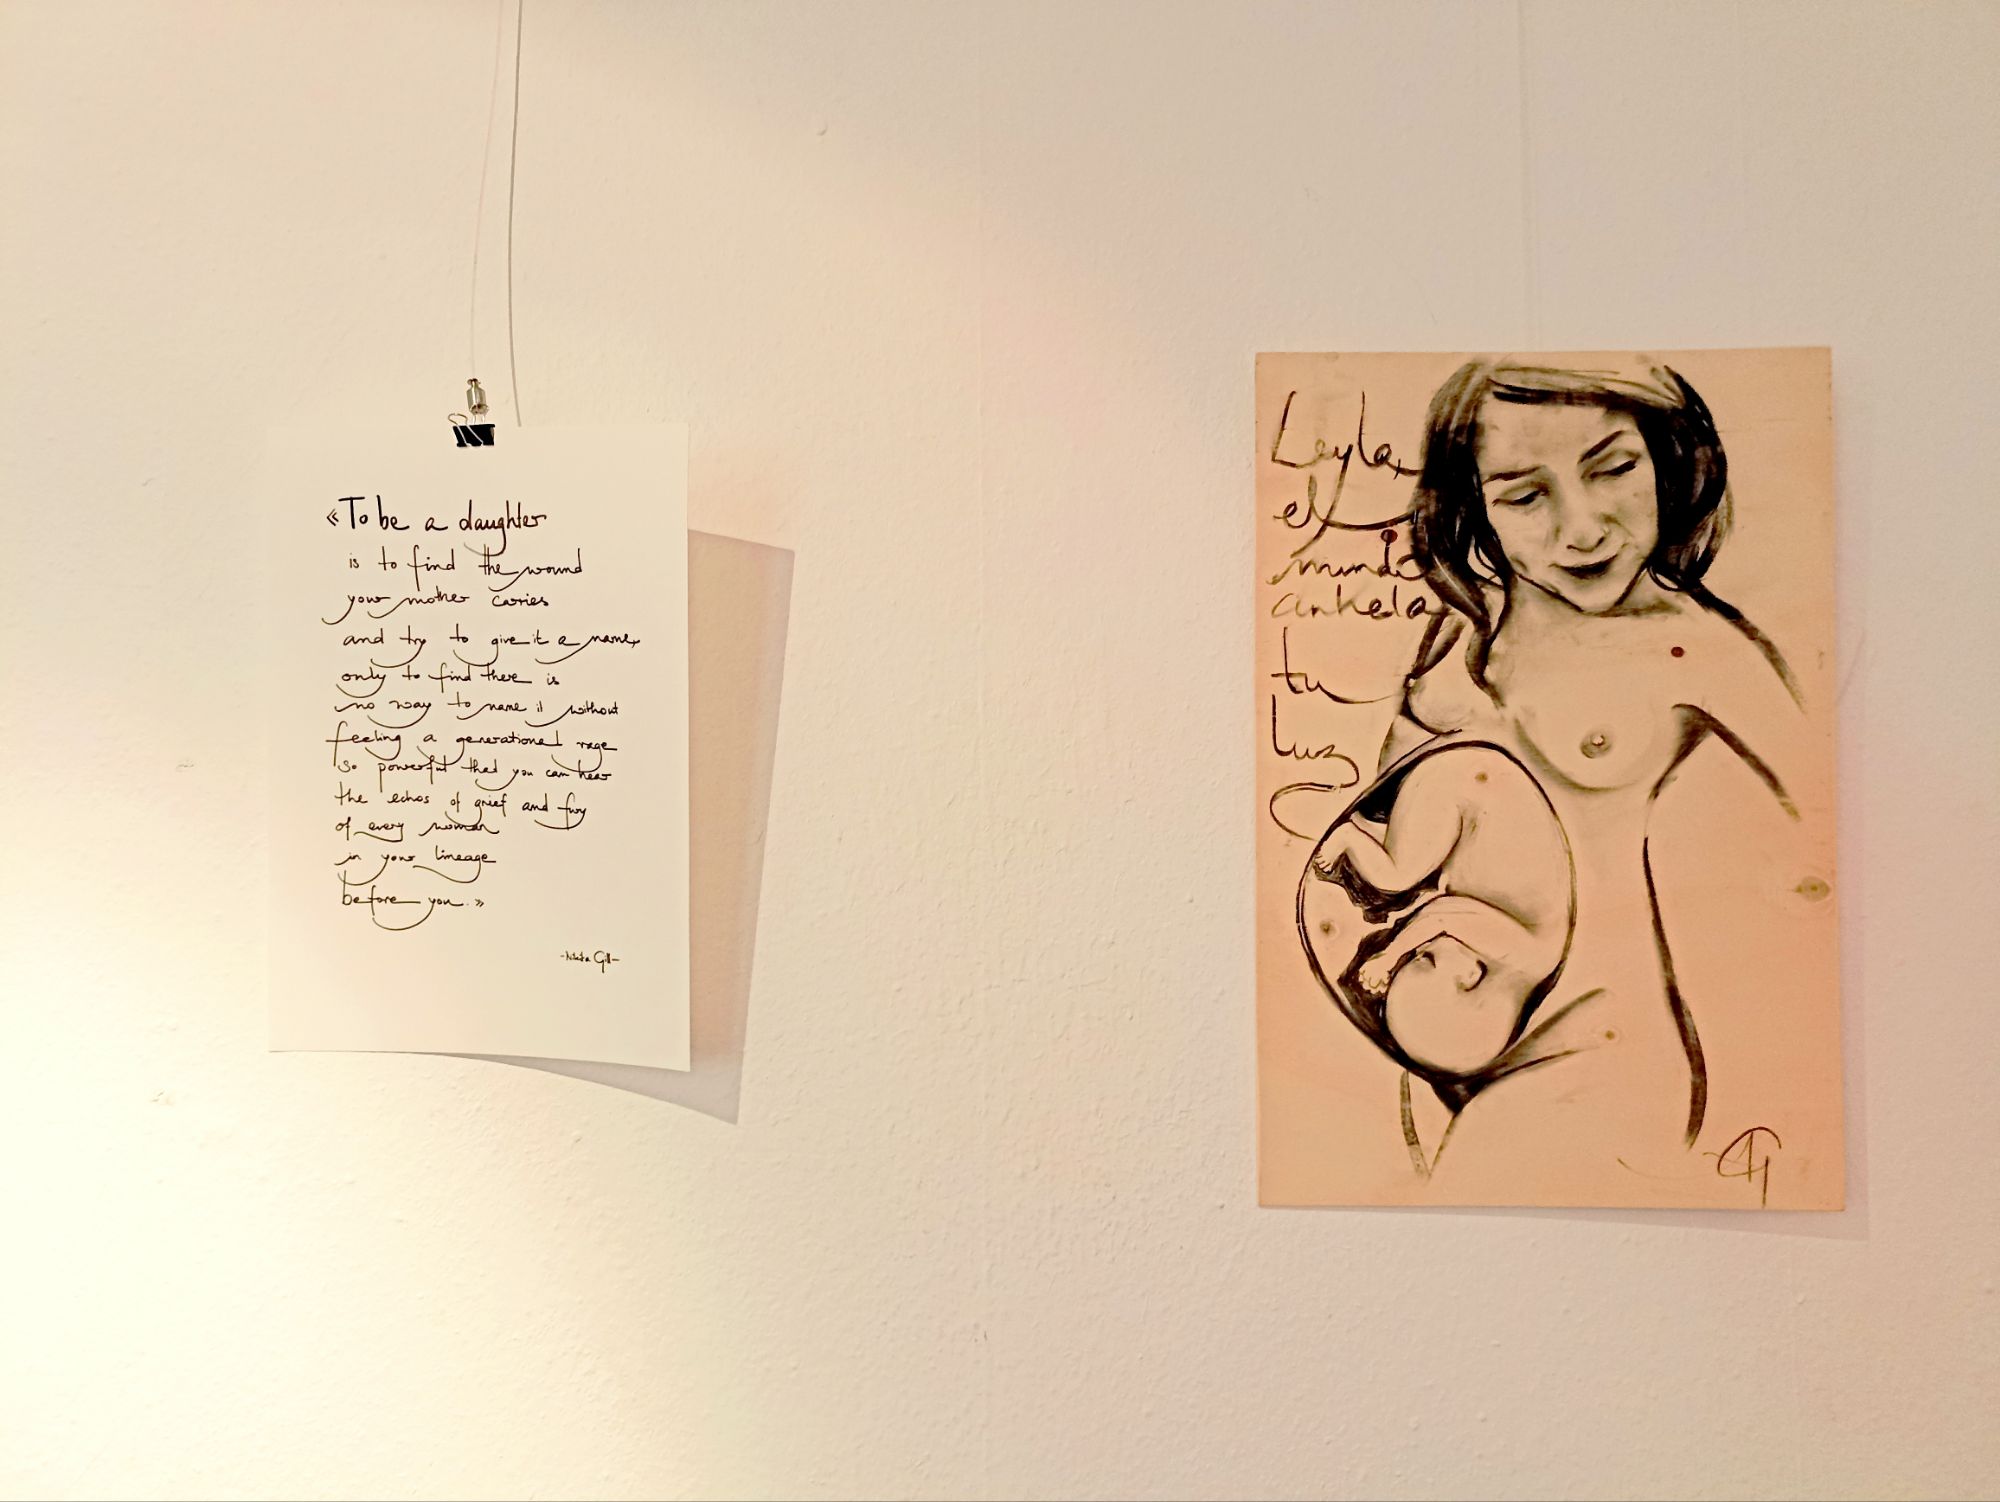 «To be a daughter
is to find the wound
your mother carries
and try to give it a name,
only to find there is
no way to name it without
feeling a generational rage
so powerful that you can hear
the echos of grief and fury
of every woman
in your lineage
before you.»
-Nikita Gill-
Leyla,
el
mundo
anhela
tu
luz